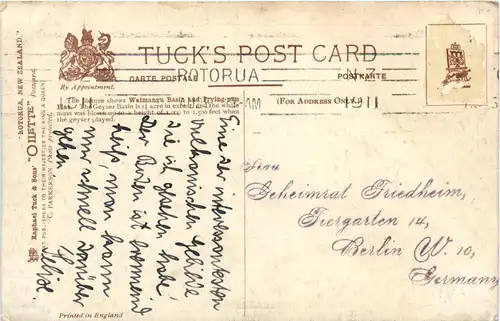 TUCK'S POST CARD
By Appointment.
CARTE POSTALE
POSTKARTE
ROTORUA
AM
1911
(FOR ADDRESS ONLY.)
The picture shows Waimangu Basin and Frying-pan
Flat. The Geyser Basin is 1¼ acre in extent, and the whole
mass was blown up to a height of 1,000 to 1,500 feet when
the geyser played.
"ROTORUA, NEW ZEALAND."
Raphael Tuck & Sons' "OILETTE" Postcard.
PUBLISHERS TO THEIR MAJESTIES THE KING & QUEEN.
C. PARKERSON
Printed in England
Eine der interessantesten
vulkanischen Gebilde
die ich gesehen habe!
Der Boden ist brennend
heiß, man kann
nur schnell darüber
gehen
Herrn
Geheimrat Friedheim,
Tiergarten 14,
Berlin W. 10,
Germany